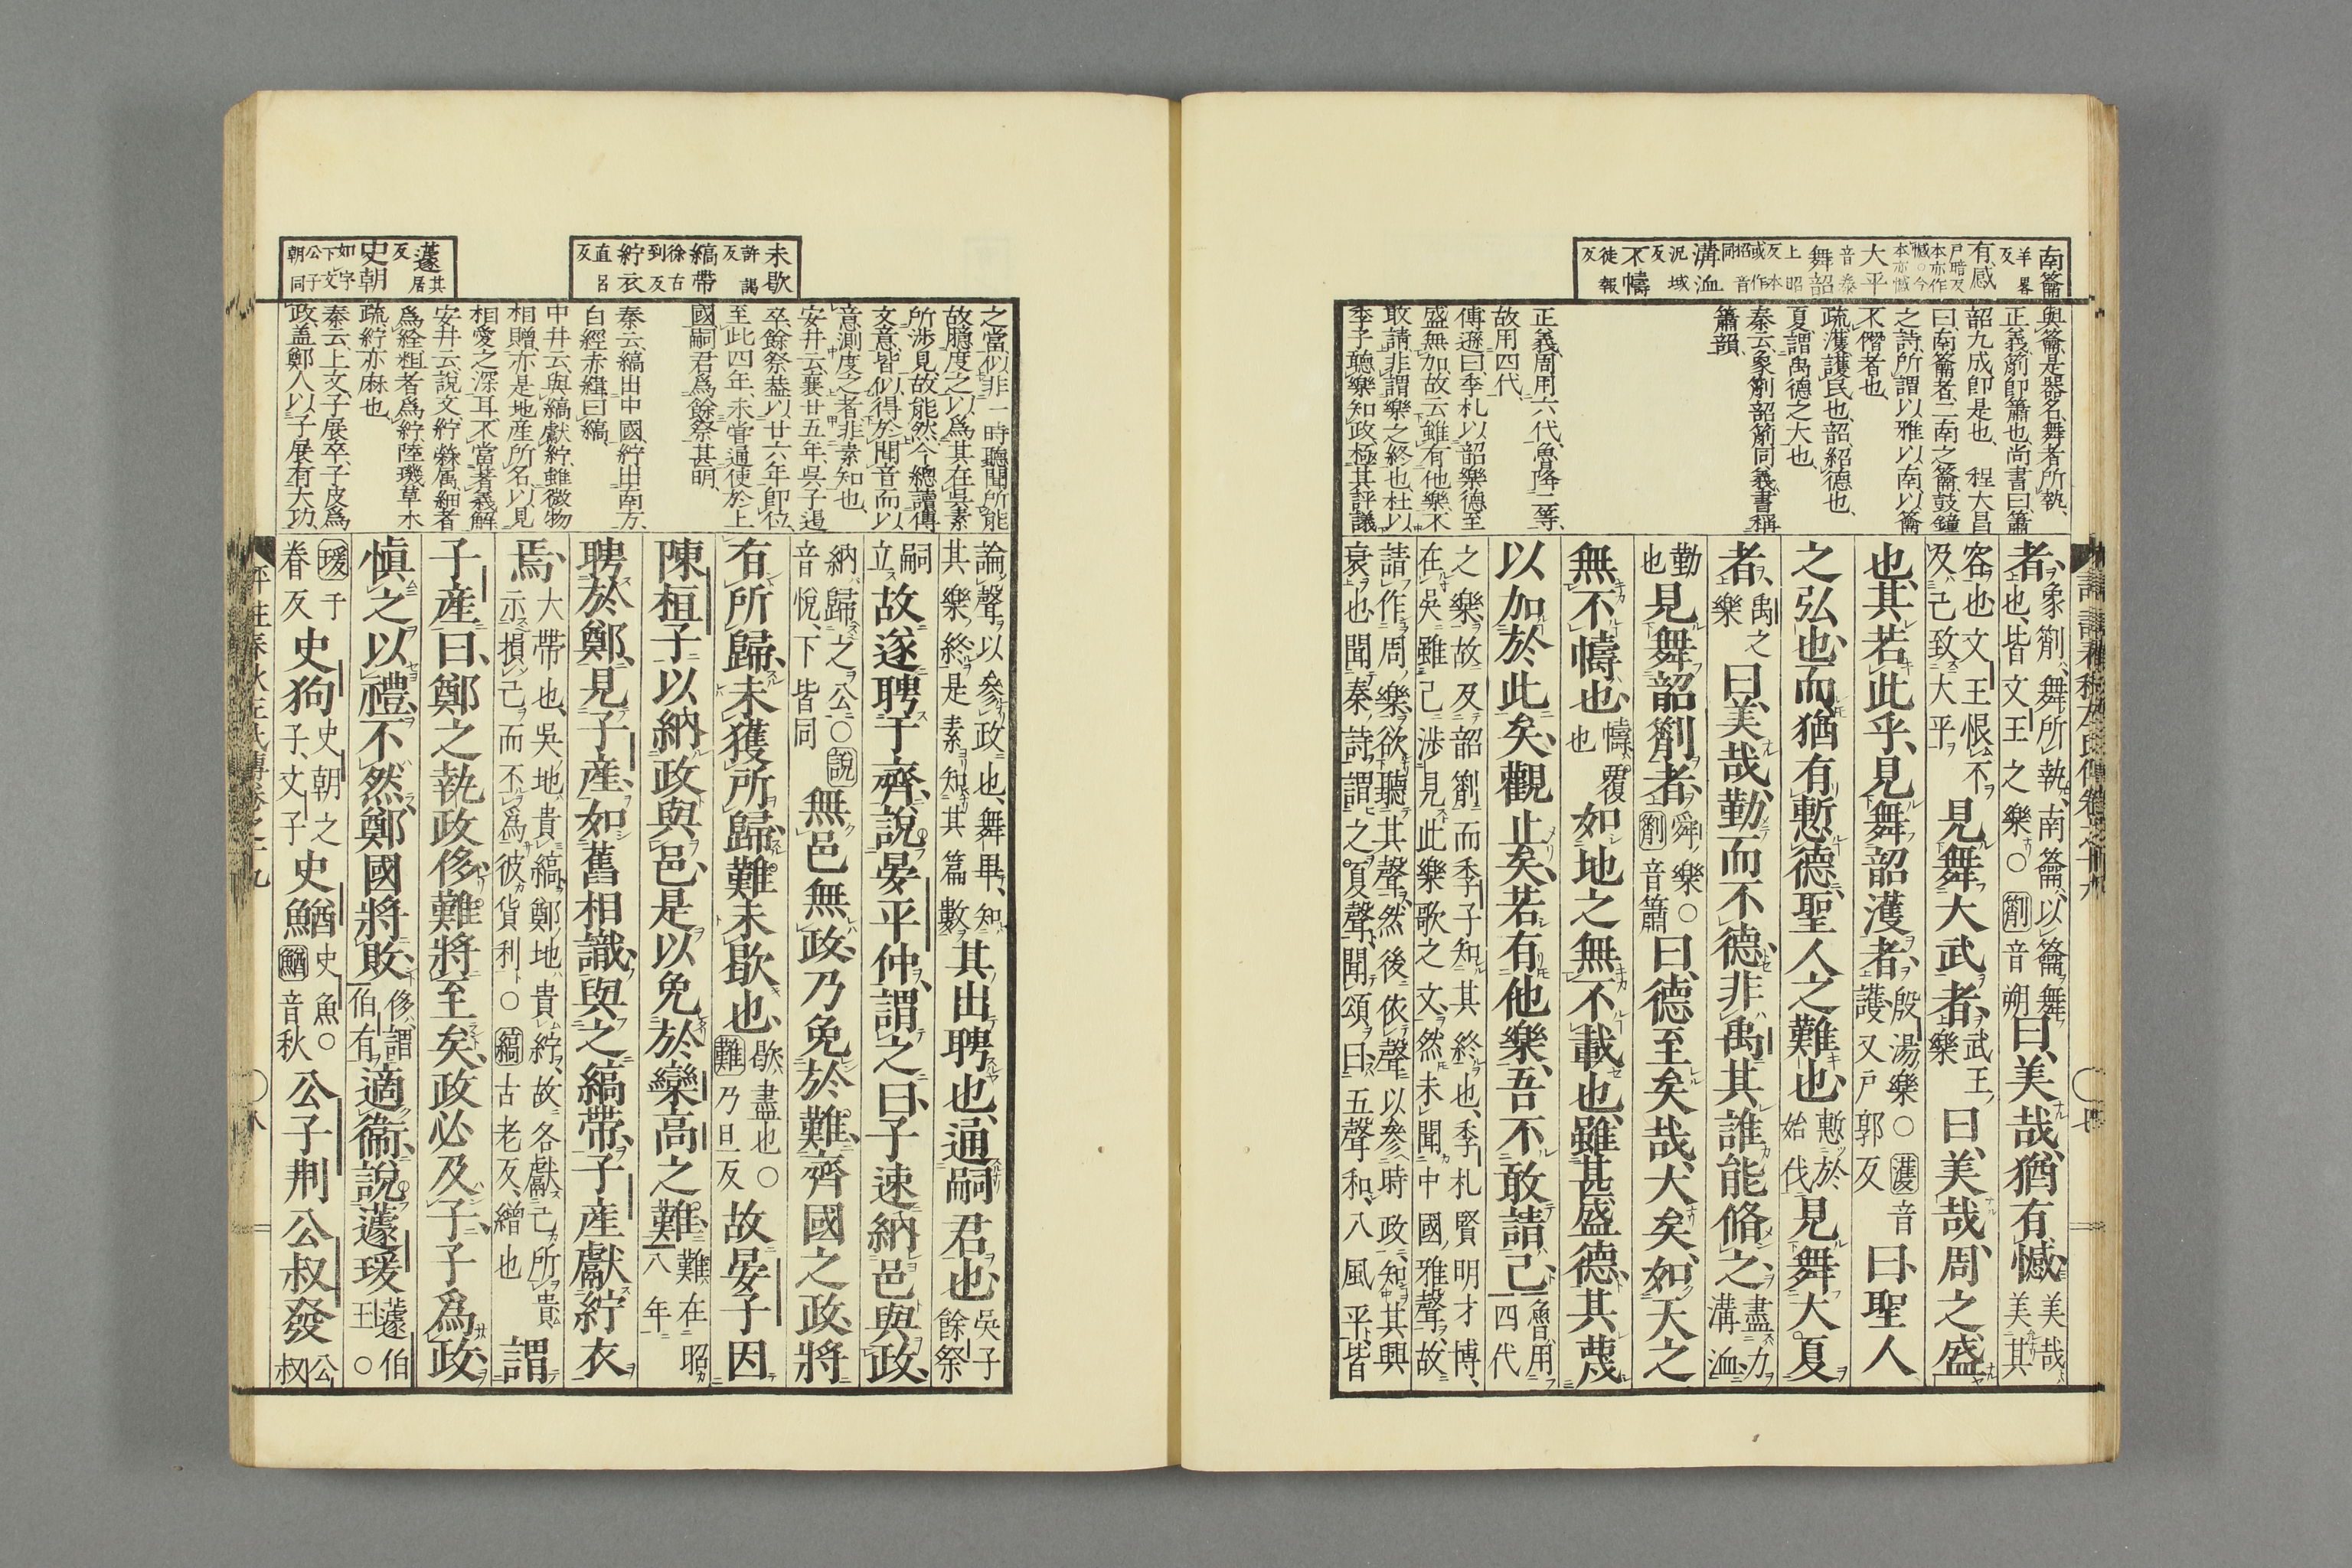 南籥
羊畧
反
有感
戸暗反
本亦作
憾○今
本亦憾
大平
音泰
舞韶
上昭
反本
或作
招音
同
溝洫
況域
反
不幬
徒報
反
與籥是器名舞者所執、
正義箾即簫也尚書曰簫
韶九成即是也 程大昌
曰南籥者二南之籥鼓鐘
之詩所謂以雅以南以籥
不僭者也
疏濩護民也韶紹德也、
夏謂禹德之大也
秦云象箾韶箾同義書稱
簫韶、
正義周用六代魯降二等、
故用四代、
傅遜曰季札以韶樂德至
盛無加故云雖有他樂不
敢請非謂樂之終也杜以
季子聽樂知政極其評議
者、象箾舞所執南籥以籥舞也皆文王之樂○箾音朔曰美哉、猶有憾、美哉美其
容也文王恨不及己致大平見舞大武者、武王樂曰、美哉、周之盛
也、其若此乎、見舞韶濩者、殷湯樂○濩音護又戸郭反曰、聖人
之弘也、而猶有慙德、聖人之難也、慙於始伐見舞大夏
者、禹之樂曰、美哉、勤而不德、非禹其誰能脩之、盡力溝洫
勤也見舞韶箾者、舜樂○箾音簫曰、德至矣哉、大矣、如天之
無不幬也、幬覆也如地之無不載也、雖甚盛德、其蔑
以加於此矣、觀止矣、若有他樂、吾不敢請已、魯用四代
之樂故及韶箾而季子知其終也、季札賢明才博、
在吳雖已渉見此樂歌之文然未聞中國雅聲、故
請作周樂欲聽其聲然後依聲以參時政、知其興
衰也聞秦詩謂之夏聲聞頌曰、五聲和八風平、皆
未歇
許謁
反
縞帶
徐古
到反
紵衣
直呂
反
蘧
其居
反
史朝
如字
下文
公子
朝同
之當似非一時聽聞所能
故臆度之以爲其在吳素
所渉見故能然今總讀傳
文意皆似得於聞音而以
意測度之者非素知也
安井云襄廿五年吳子遏
卒餘祭葢以廿六年即位、
至此四年、未嘗通使於上
國嗣君爲餘祭甚明、
秦云縞出中國紵出南方、
白經赤緯曰縞
中井云與縞獻紵雖微物
相贈亦是地産所名以見
相愛之深耳不當著義解
安井云説文紵䋷属細者
爲絟粗者爲紵陸璣草木
疏紵亦麻也
秦云上文子展卒子皮爲
政盖鄭人以子展有大功
論聲以參政也、舞畢、知其樂終是素知其篇數其出聘也、通嗣君也、吳子餘祭
嗣立故遂聘于齊、說晏平仲、謂之曰、子速納邑與政、
納歸之公○說音悅、下皆同無邑無政、乃免於難、齊國之政、將
有所歸、未獲所歸、難未歇也、歇盡也○難乃旦反故晏子因
陳桓子以納政與邑、是以免於欒高之難、難在昭八年
聘於鄭、見子産、如舊相識、與之縞帶、子産獻紵衣
焉、大帶也、吳地貴縞鄭地貴紵、故各獻己所貴、示損己而不爲彼貨利○縞古老反、繒也謂
子産曰、鄭之執政侈、難將至矣、政必及子、子爲政、
愼之以禮、不然、鄭國將敗、侈謂伯有適衞、說蘧瑗、蘧伯玉○
瑗于眷反史狗史朝之子、文子史鰌史魚○鰌音秋公子荆公叔發公叔